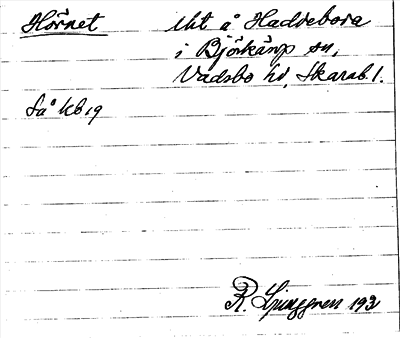 Hörnet
Uht å Haddebora
i Björkäng sn,
Vadsbo hd, Skarab. l.
Så ᵒ kb 19
R. Ljunggren 193